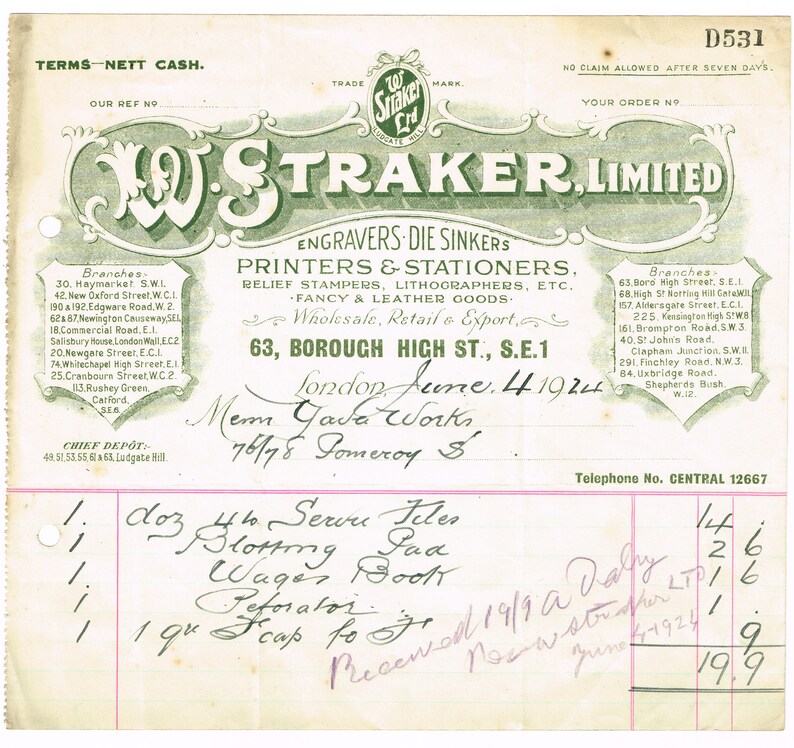 D531
TERMS—NETT CASH.
NO CLAIM ALLOWED AFTER SEVEN DAYS.
TRADE MARK.
W Straker Ltd
LUDGATE HILL
OUR REF No
YOUR ORDER No
W. STRAKER, LIMITED
ENGRAVERS · DIE SINKERS
PRINTERS & STATIONERS,
RELIEF STAMPERS, LITHOGRAPHERS, ETC.
· FANCY & LEATHER GOODS ·
Wholesale, Retail & Export,
63, BOROUGH HIGH ST., S.E.1
Branches:-
30, Haymarket. S.W.1.
42, New Oxford Street, W.C.1.
190 & 192, Edgware Road, W.2.
62 & 67, Newington Causeway, S.E.1.
18, Commercial Road, E.1.
Salisbury House, London Wall, E.C.2.
20, Newgate Street, E.C.1.
74, Whitechapel High Street, E.1.
25, Cranbourn Street, W.C.2.
113, Rushey Green,
Catford,
S.E.6.
Branches:-
63, Boro' High Street, S.E.1.
68, High St Notting Hill Gate, W.11.
157, Aldersgate Street, E.C.1.
225, Kensington High St W.8
161, Brompton Road, S.W.3.
40, St John's Road,
Clapham Junction, S.W.11.
291, Finchley Road, N.W.3.
84, Uxbridge Road,
Shepherds Bush.
W.12.
London, June. 4 1924
Works
76/78 Pomeroy St
CHIEF DEPÔT:-
49, 51, 53, 55, 61 & 63, Ludgate Hill.
Telephone No. CENTRAL 12667
1. doz Files 14 .
1 Blotting Pad 2 6
1. Wages Book 1 6
1. Peforator 1 .
1 1 qr Fcap 9
19.9
Received 19/9 A
LTD
June 4-1924